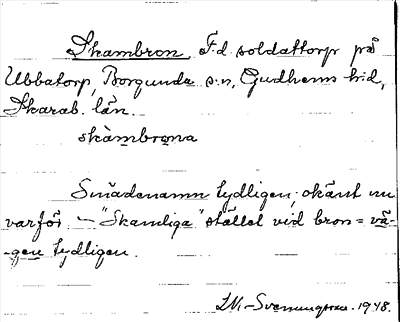 Skambron F.d. soldattorp på
Ubbatorp, Borgunda s:n, Gudhems h:d,
Skarab. län.
skàmbrona
Smädenamn tydligen, okänt nu
varför – "Skamliga" stället vid bron = vä-
-gen tydligen.
1948.